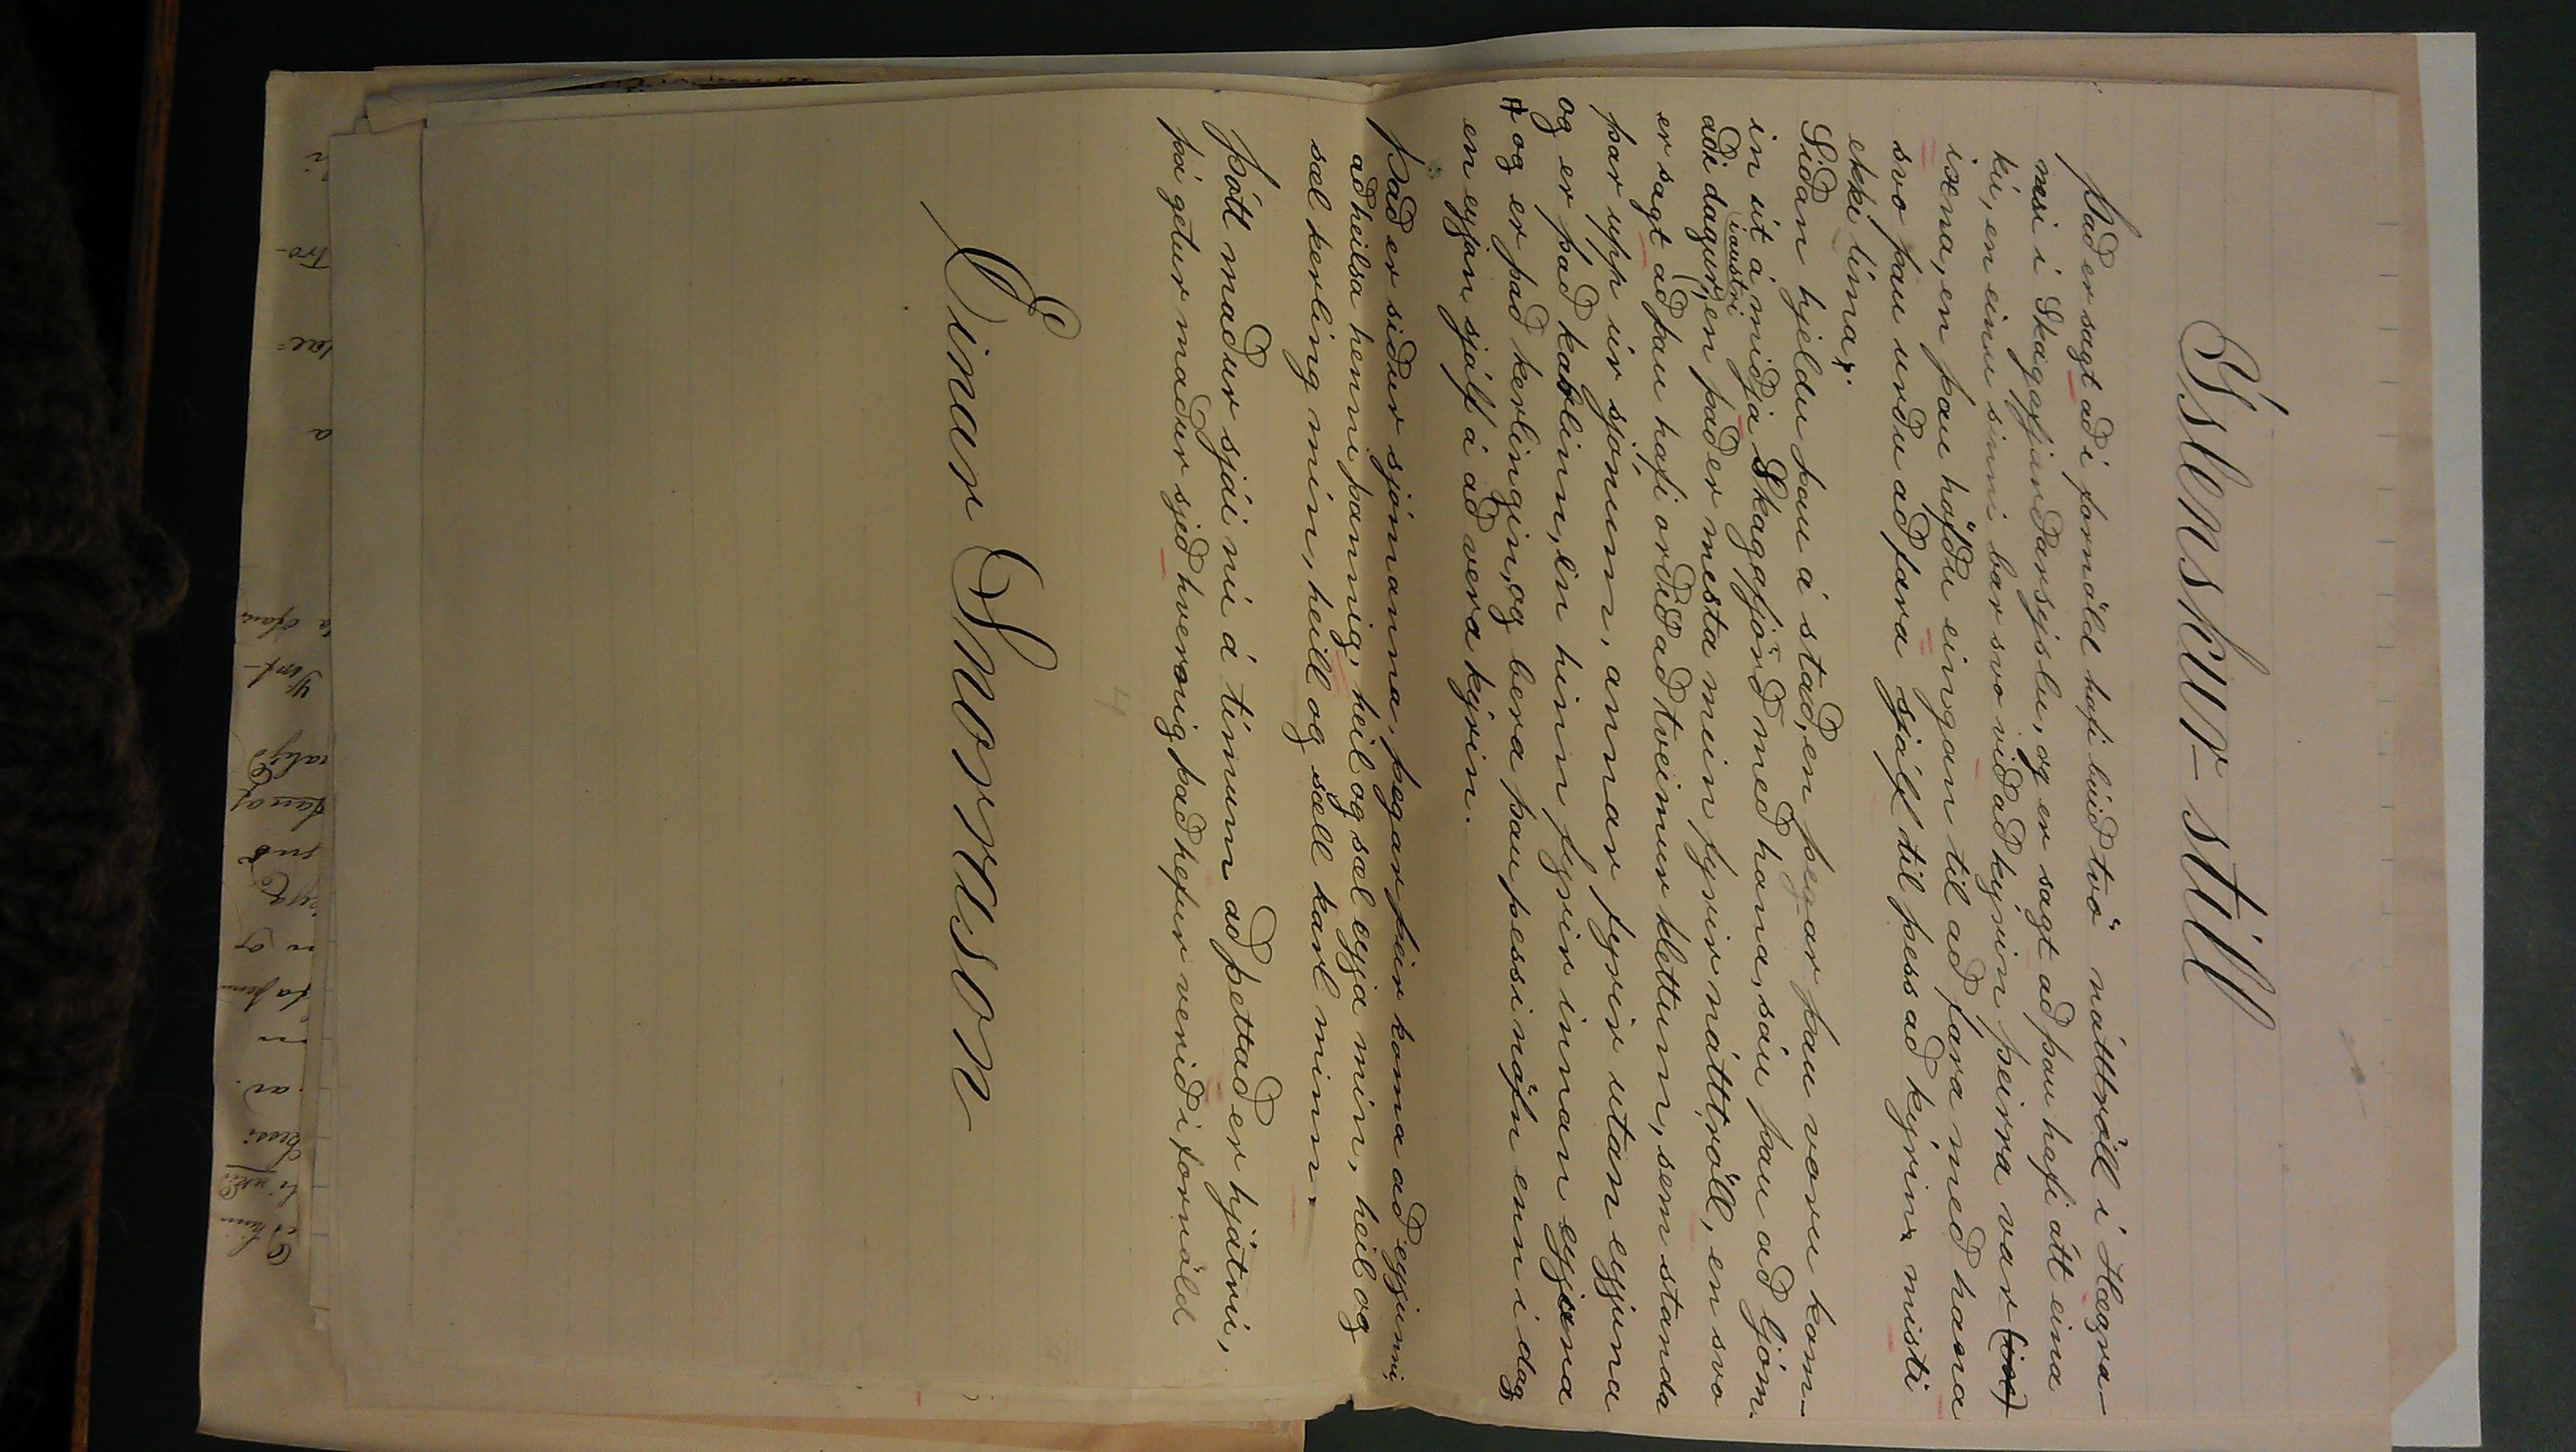 Íslenskur-still
Það er sagt að í fornöld hafi búið tvö náttröll í Hegra-
nesi í Skagafjarðarsýslu, og er sagt að þau hafi átt eina
kú, en einu sinni bar svo við að kýrin þeirra var
ixna, en þau höfðu eingan til að fara með hana
svo þau urðu að fara sjálf til þess að kýrin misti
ekki tíma.
Siðan hjeldu þau á stað, en þegar þau voru kom-
in út á miðja Skagafjörð með hana, sáu þau að ljóm-
aði dagur í austri, en það er mesta mein fyrir náttröll, en svo
er sagt að þau hafi orðið að tveimur klettum, sem standa
þar upp úr sjónum, annar fyrir utan eyjuna
og er það karlinn, en hinn fyrir innan eyjuna
og er það kerlingin, og bera þau þessi nöfn enn í dag
en eyjan sjálf á að vera kýrin.
Það er siður sjómanna, þegar þeir koma að eyjunni,
að heilsa henni þannig, heil og sæl eyja mín, heil og
sæl kerling mín, heill og sæll karl minn.
Þótt maður sjái nú á tímum að þetta er hjátrú,
þá getur maður sjeð hvernig það hefur verið í fornöld
4
Einar Snorrason